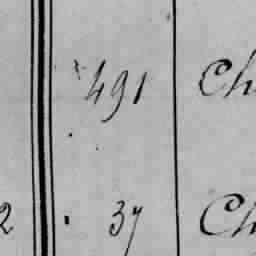 491 Ch
2 37 Ch